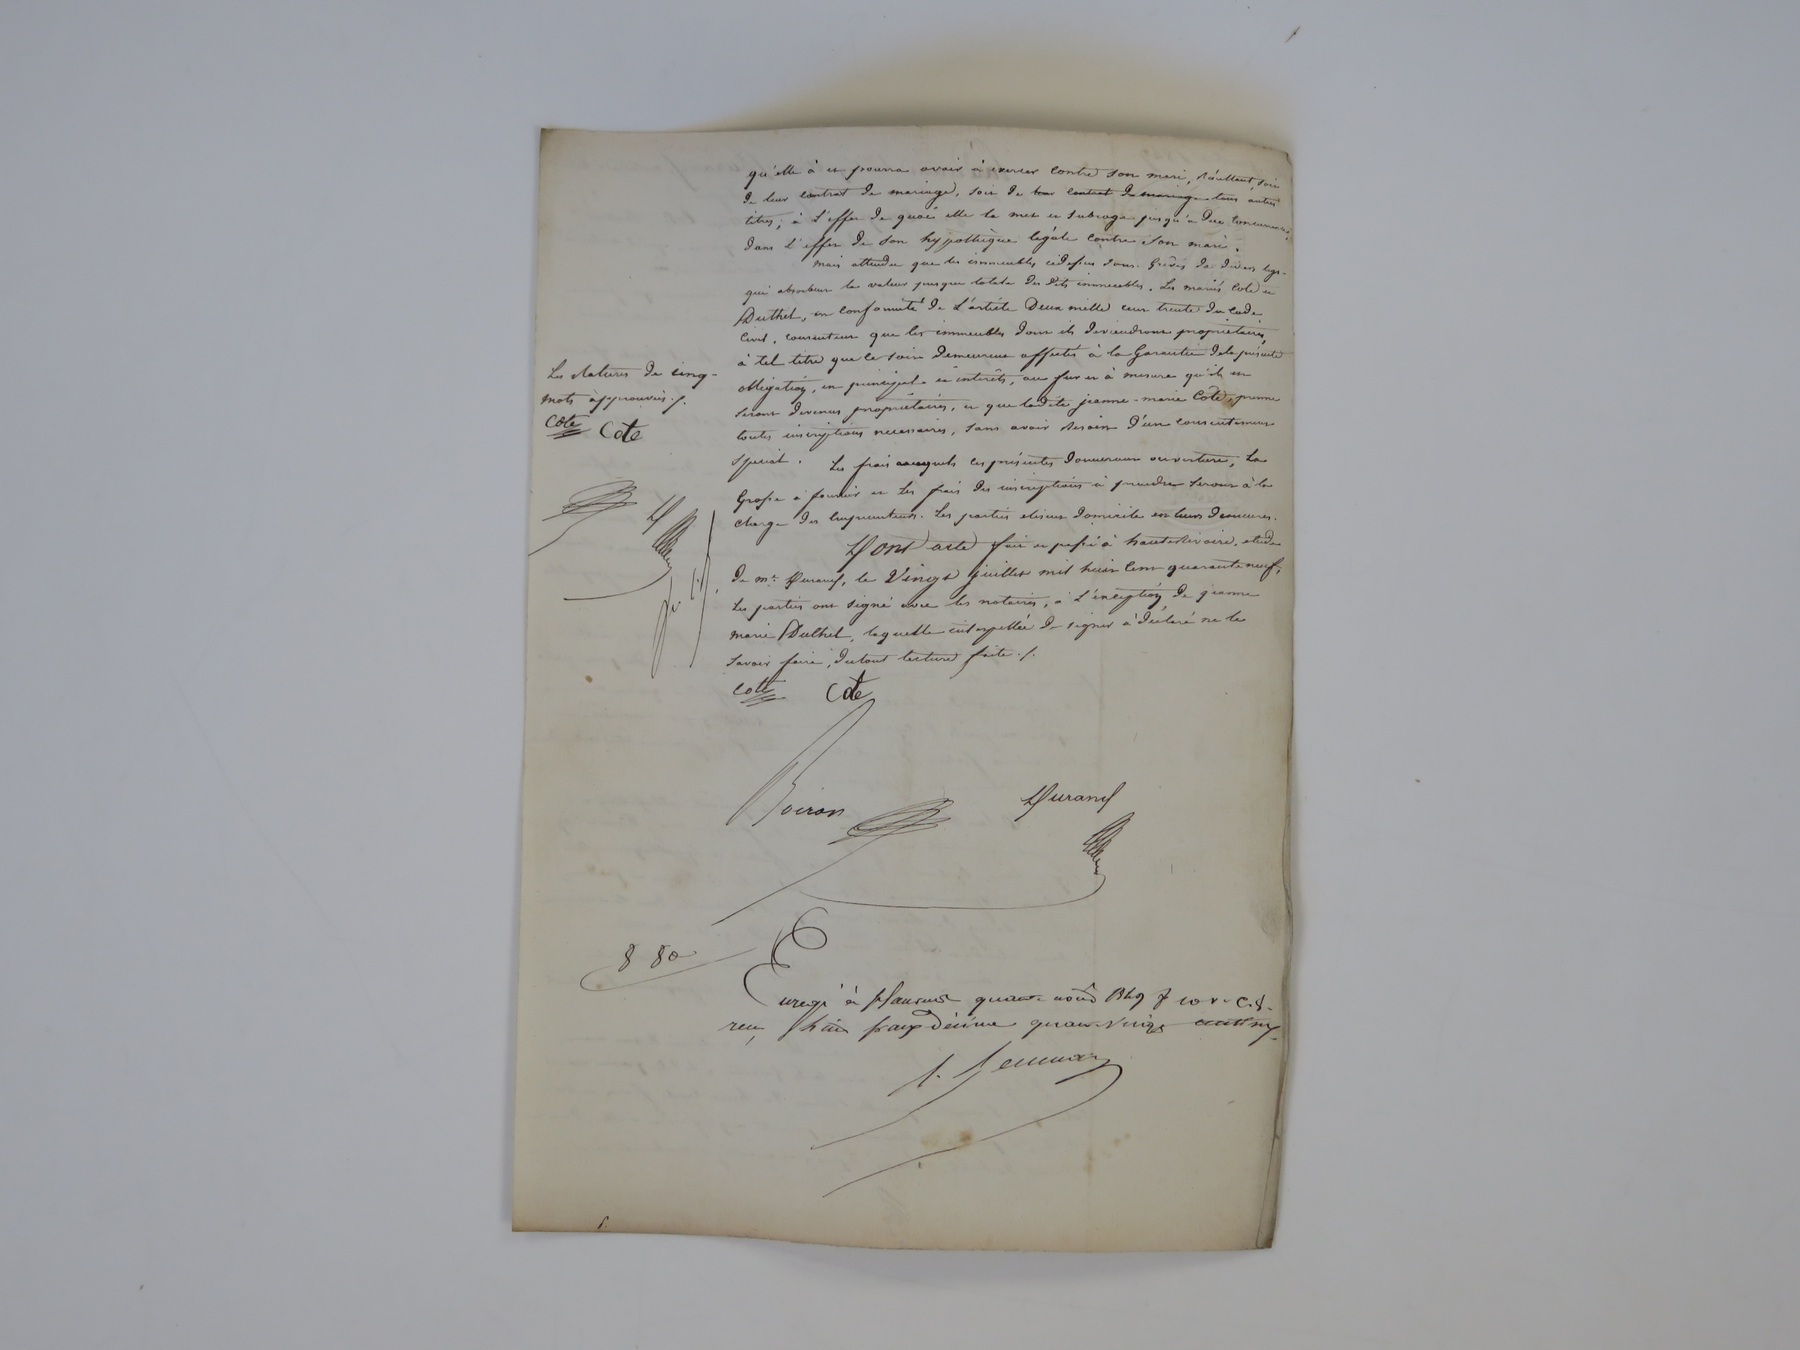 qu'elle à et pourra avoir à exercer contre son mari, Résultant, soit
de leur contrat de mariage, soit de tous contrat de mariage tous autres
titres; à L'effet de quoi elle la met et subroge jusqu'à due concurrence,
dans L'effet de son hypothèque légale contre son mari.
Mais attendu que les immeubles cidessus sont Grevés de divers legs
qui absorbent la valeur presque totale des dits immeubles, Les mariés Cote et
Duthel, en conformité de L'article Deux mille cent trente du Code
Civil, consentent que les immeubles dont ils deviendront propriétaires,
à tel titre que ce soit Demeurent affectés à la Garantie dela présente
obligation, en principal et intérêts, au fur et à mesure qu'ils en
seront devenus propriétaires, et que ladite jeanne-marie Cote, prenne
toutes inscriptions nécessaires, sans avoir besoin d'un consentement
spécial. Les frais auxquels ces présentes donneront ouverture, La
Grosse à fournir et Les frais des inscriptions à prendre seront à la
charge des Emprunteurs. Les parties elisent domicile en leurs demeures.
Dont acte fait et passé à hauterivoire, etude
de me. Durand, le Vingt juillet mil huit cent quarante neuf,
Les parties ont signé avec les notaires, à L'exception de jeanne
marie Duthel, laquelle interpellée de signer à déclaré ne le
savoir faire, dutout lecture faite ./.
Les Ratures de cinq
mots approuvées ./.
Cote Cote
D
Cote Cote
Boiron Durand
8 80
Enregé à
reçu huit francs décime quatre Vingt centimes